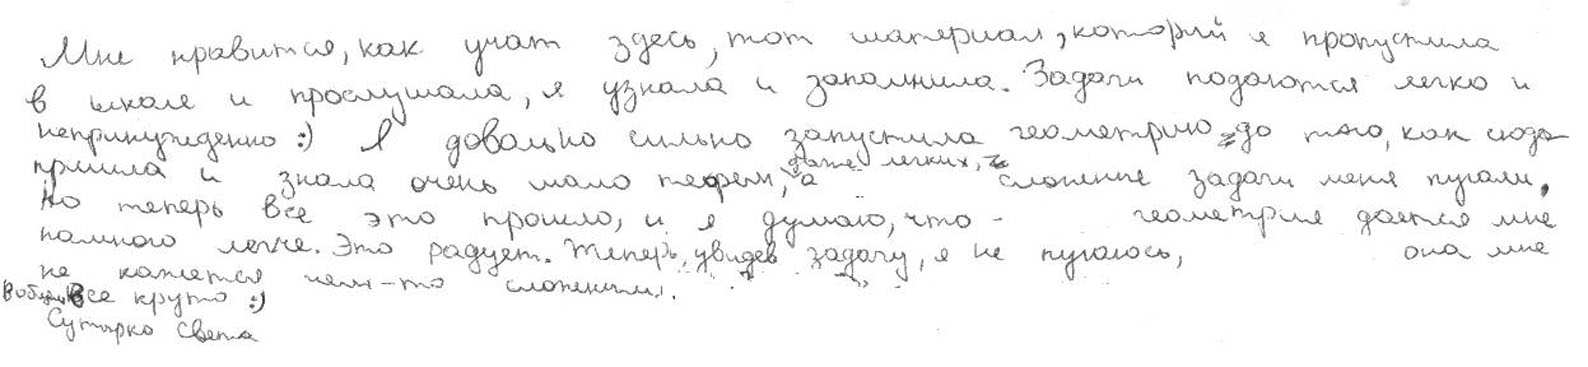 Мне нравится, как учат здесь, тот материал, который я пропустила
в школе и прослушала, я узнала и запомнила. Задачи подаются легко и
непринужденно :) Я довольно сильно запустила геометрию до того, как сюда
пришла и знала очень мало теорем, даже легких, а сложные задачи меня пугали.
Но теперь все это прошло, и я думаю, что - геометрия дается мне
намного легче. Это радует. Теперь, увидев задачу, я не пугаюсь, она мне
не кажется чем-то сложным.
Вобщем все круто :)
Сутырко Света